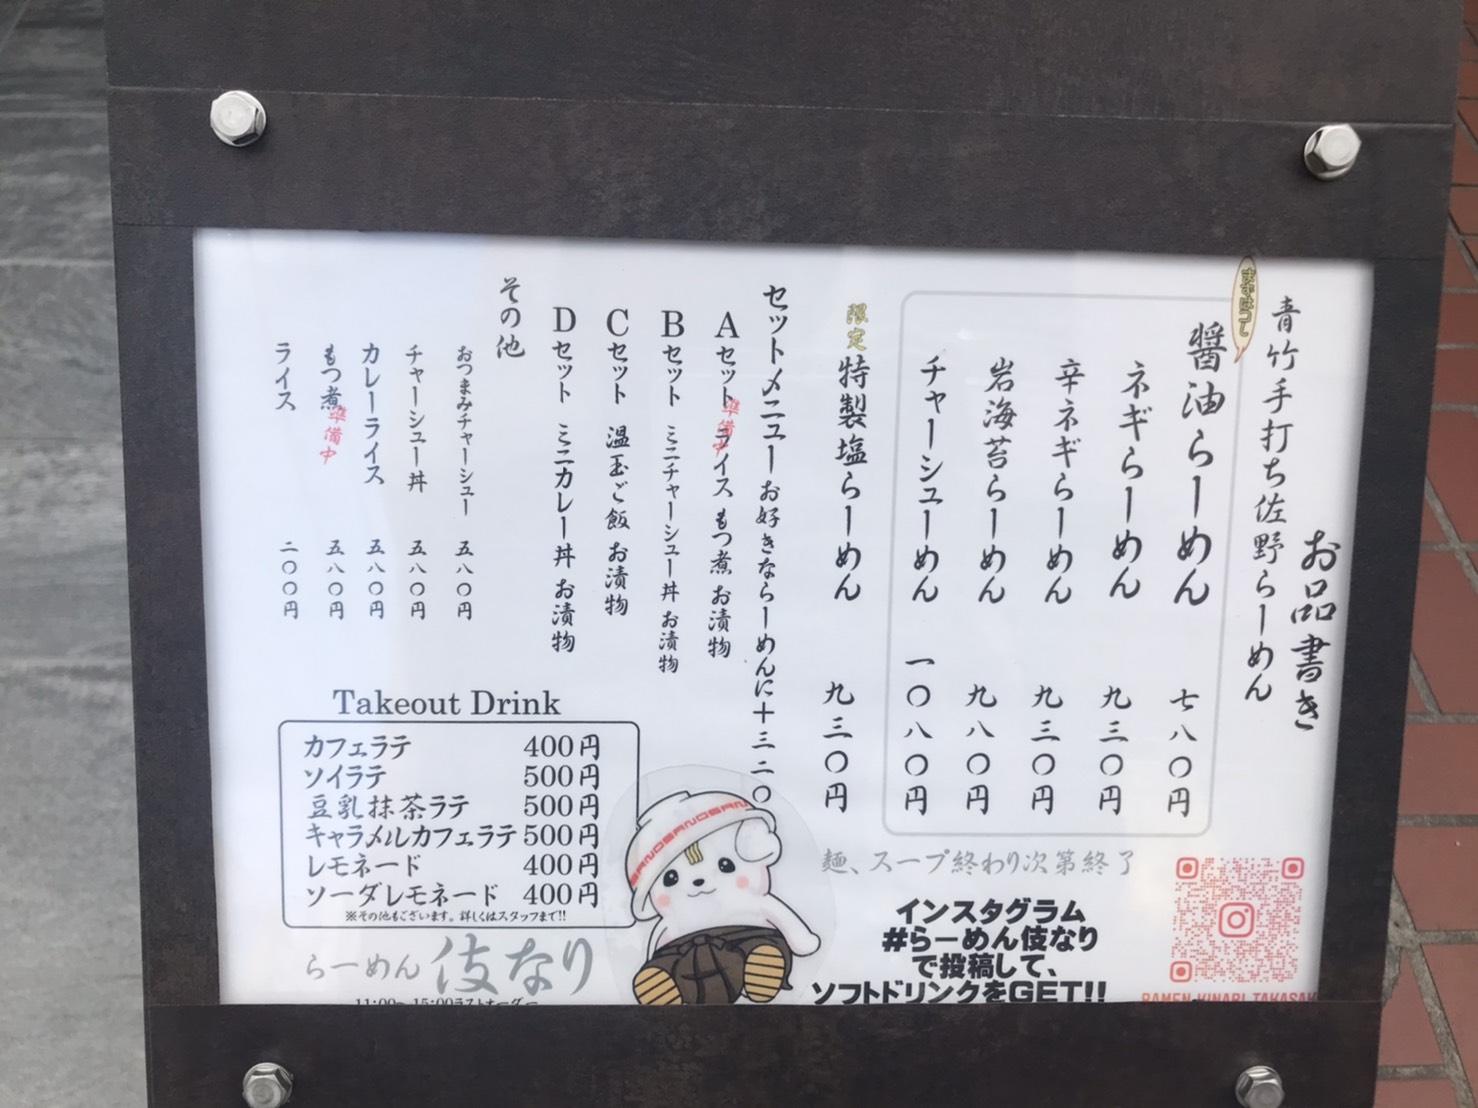 お品書き
青竹手打ち佐野らーめん
まずはコレ
醤油らーめん 七八〇円
ネギらーめん 九三〇円
辛ネギらーめん 九三〇円
岩海苔らーめん 九八〇円
チャーシューめん 一〇八〇円
限定 特製塩らーめん 九三〇円
セットメニューお好きならーめんに+三二〇
Aセット ライス もつ煮 お漬物
準備中
Bセット ミニチャーシュー丼 お漬物
Cセット 温玉ご飯 お漬物
Dセット ミニカレー丼 お漬物
その他
おつまみチャーシュー 五八〇円
チャーシュー丼 五八〇円
カレーライス 五八〇円
もつ煮 準備中 五八〇円
ライス 二〇〇円
Takeout Drink
カフェラテ 400円
ソイラテ 500円
豆乳抹茶ラテ 500円
キャラメルカフェラテ 500円
レモネード 400円
ソーダレモネード 400円
※その他もございます。詳しくはスタッフまで!!
らーめん 伎なり
11:00~15:00ラストオーダー
SANOSANOSAN
麺、スープ終わり次第終了
インスタグラム
#らーめん伎なり
で投稿して、
ソフトドリンクをGET!!
RAMEN_KINARI_TAKASAK